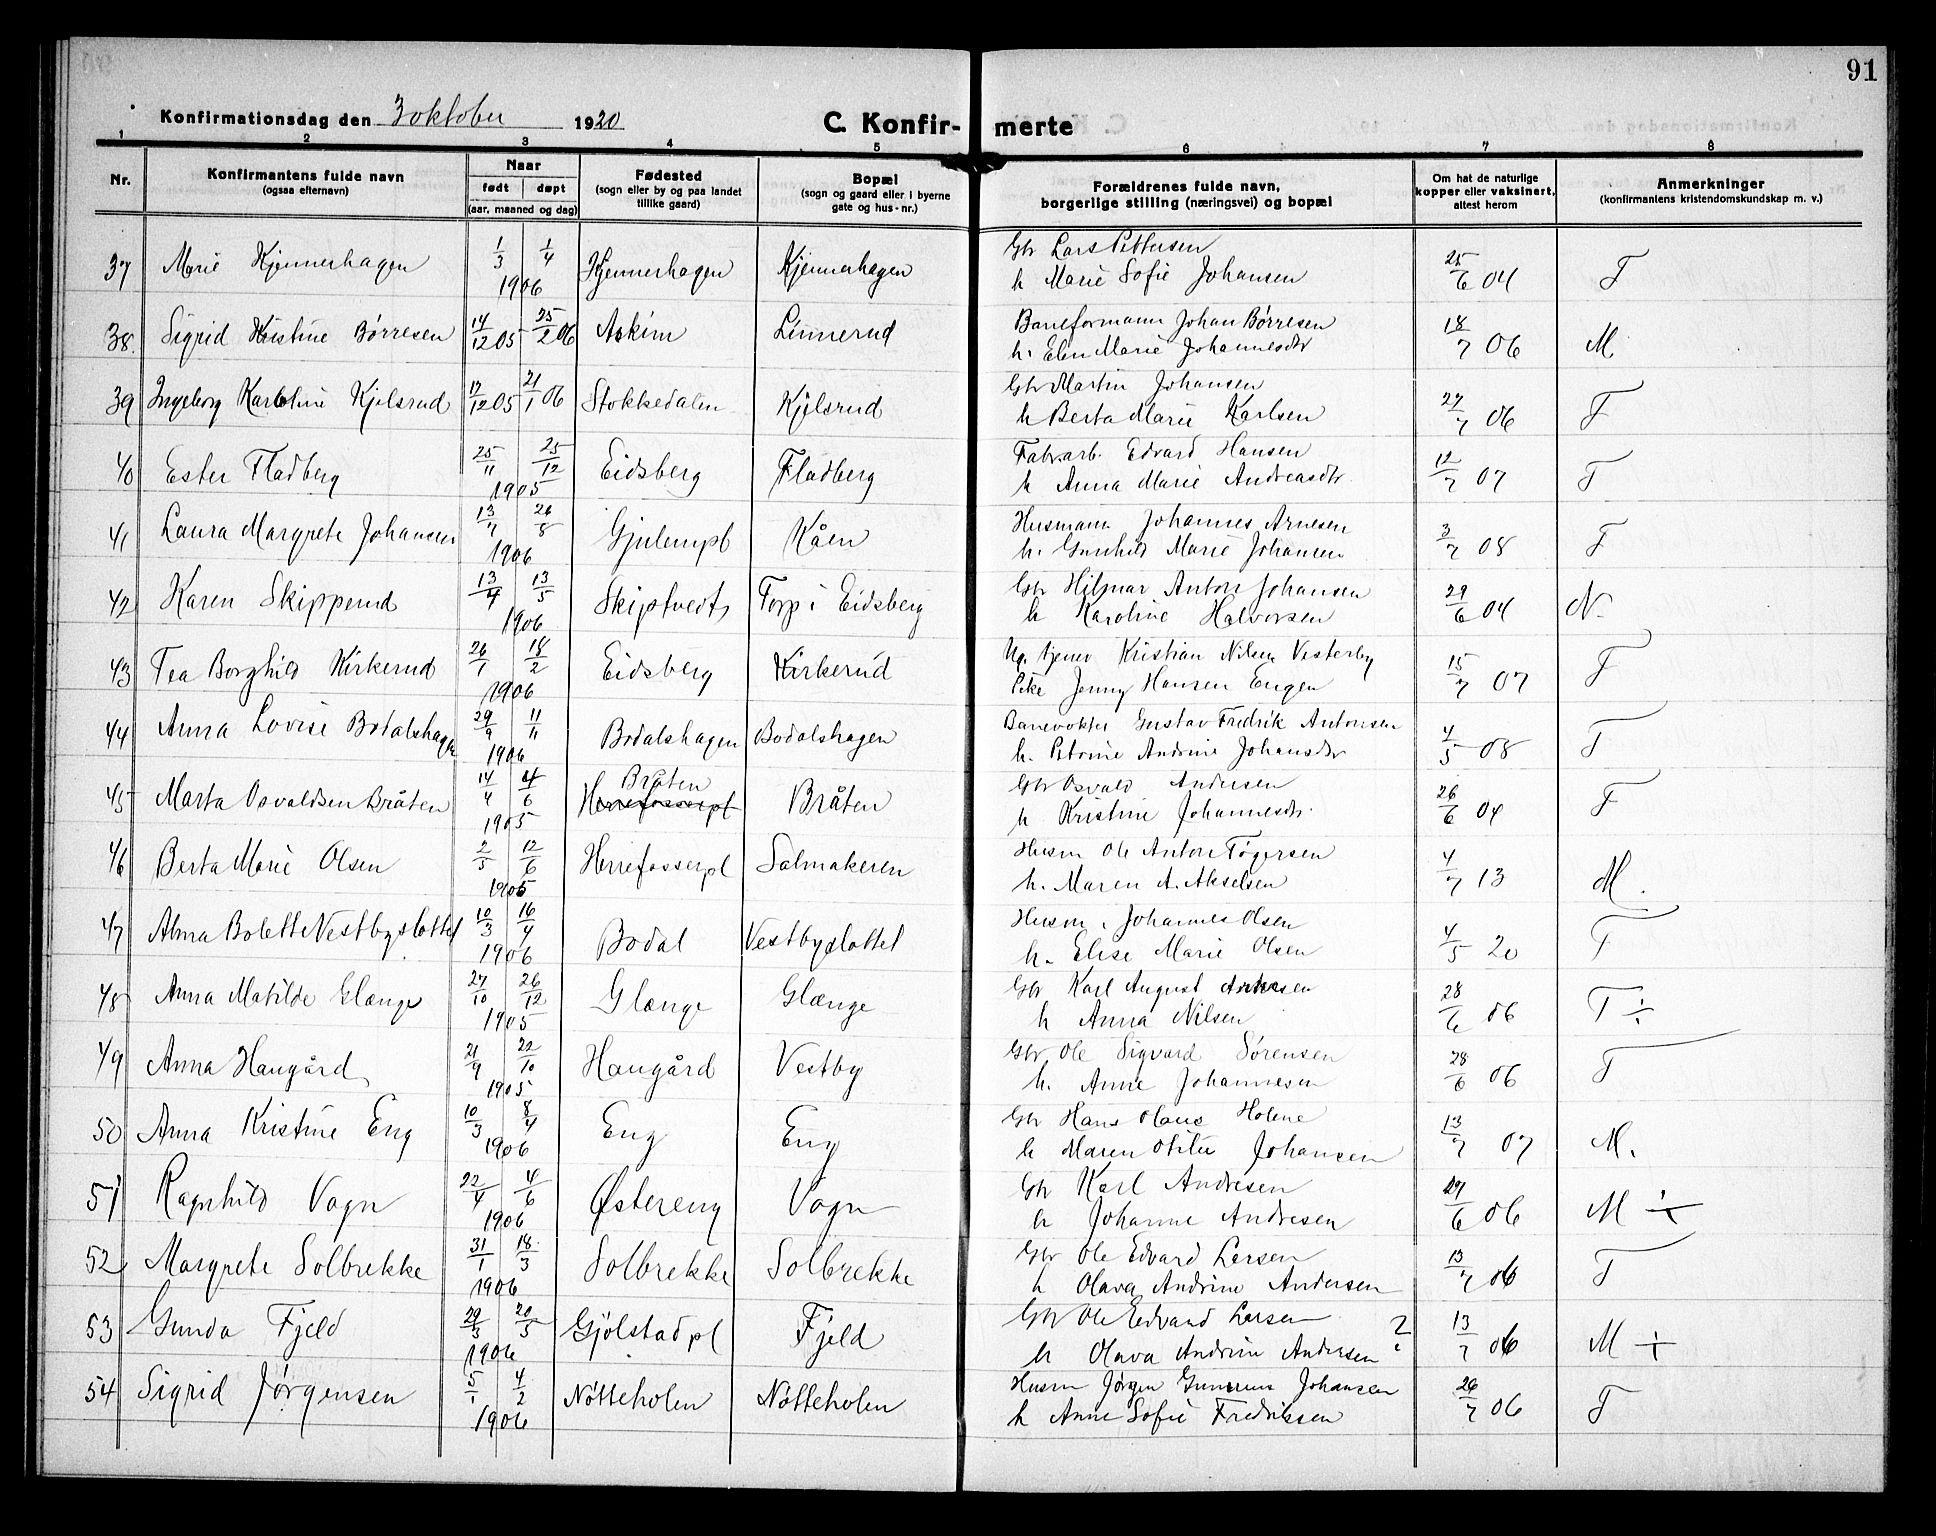 91
Konfirmationsdag den 3 oktober 1920
C. Konfir- merte
1 2 3 4 5 6 7 8
Nr.
Konfirmantens fulde navn
(ogsaa efternavn)
Naar
født døpt
(aar, maaned og dag)
Fødested
(sogn eller by og paa landet
tillike gaard)
Bopæl
(sogn og gaard eller i byerne
gate og hus-nr.)
Forældrenes fulde navn,
borgerlige stilling (næringsvei) og bopæl
Om hat de naturlige
kopper eller vaksinert,
attest herom
Anmerkninger
(konfirmantens kristendomskundskap m. v.)
37 Marie Kjennerhagen 1/3 1/4 1906 Kjennerhagen Kjennerhagen Gbr Lars Pettersen
h Marie Sofie Johansen 25/6 04 T
38. Sigrid Kristine Børresen 14/12 05 25/2 06 Askim Linnerud Baneformann Johan Børresen
h. Elen Marie Johannesdtr 18/7 06 M
39 Ingeborg Karoline Kjelsrud 17/12 05 21/1 06 Stokkedalen Kjelsrud Gbr Martin Johansen
h Berta Marie Karlsen 27/7 06 T
40 Ester Fladberg 25/11 25/12 1905 Eidsberg Fladberg Fabr.arb. Edvard Hansen
h Anna Marie Andreasdtr. 12/7 07 T
41 Laura Margrete Johansen 13/7 26/8 1906 Gjulempl Kåen Husmann Johannes Arnesen
h. Gunhild Marie Johansen 3/7 08 T
42 Karen Skipperud 13/4 13/5 1906 Skiptvedt Torp i Eidsberg Gbr Hilmar Anton Johansen
h Karoline Halvorsen 29/6 04 N.
43 Tea Borghild Kirkerud 26/1 18/2 1906 Eidsberg Kirkerud Ug. tjener Kristian Nilsen Vesterby
Pike Jenny Hansen Engen 15/7 07 T
44 Anna Lovise Bodalshagen 29/9 11/11 1906 Bodalshagen Bodalshagen Banevokter Gustav Fredrik Antonsen
h. Petrine Andrine Johansdtr 4/5 08 T
45 Marta Osvaldsen Bråten 14/4 4/6 1905 Bråten Herrefosserpl Bråten Gbr Osvald Andersen
h Kristine Johannesdtr. 26/6 04 T
46 Berta Marie Olsen 2/5 12/6 1905 Herrefosserpl Salmakeren Husm Ole Anton Tøgersen
h. Maren A. Akselsen 4/7 13 M.
47 Alma Bolette Vestbyslottet 10/3 16/4 1906 Bodal Vestbyslottet Husm. Johannes Olsen
h. Elise Marie Olsen 4/5 20 T
48 Anna Matilde Glænge 27/10 26/12 1905 Glænge Glænge Gbr Karl August
h Anna Nilsen 28/6 06 T ÷
49 Anna Haugård 21/9 22/10 1905 Haugård Vestby Gbr Ole Sigvard Sørensen
h. Anne Johannesen 28/6 06 T
50 Anna Kristine Eng 10/3 8/4 1906 Eng Eng Gbr Hans Olaus Holene
h Maren Otilie Johansen 13/7 07 M.
51 Ragnhild Vagn 22/4 4/6 1906 Østereng Vagn Gbr Karl Andresen
h Johanne Andresen 29/6 06 M ÷
52 Margrete Solbrekke 31/1 18/3 1906 Solbrekke Solbrekke Gbr Ole Edvard Larsen
h Olava Andrine Andersen 13/7 06 T
53 Gunda Fjeld 29/3 20/5 1906 Gjølstadpl Fjeld Gbr Ole Edvard Larsen
h Olava Andrine Andersen ? 13/7 06 M ÷
54 Sigrid Jørgensen 5/1 4/2 1906 Nötteholen Nötteholen Husm Jørgen Johansen
h Anne Sofie Fredriksen 26/7 06 T